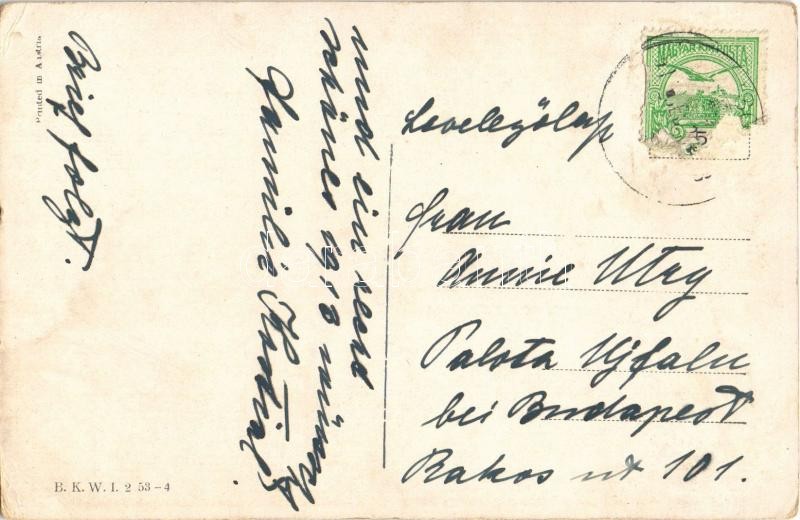 Printed in Austria
Brief folgt.
und ein recht
schönes 1910 wünscht
Familie
MAGYAR KIR. POSTA
Levelezőlap
Frau
Annie Utry
Palota Ujfalu
bei Budapest
Rakos ut 101.
B. K. W. I. 2 53-4